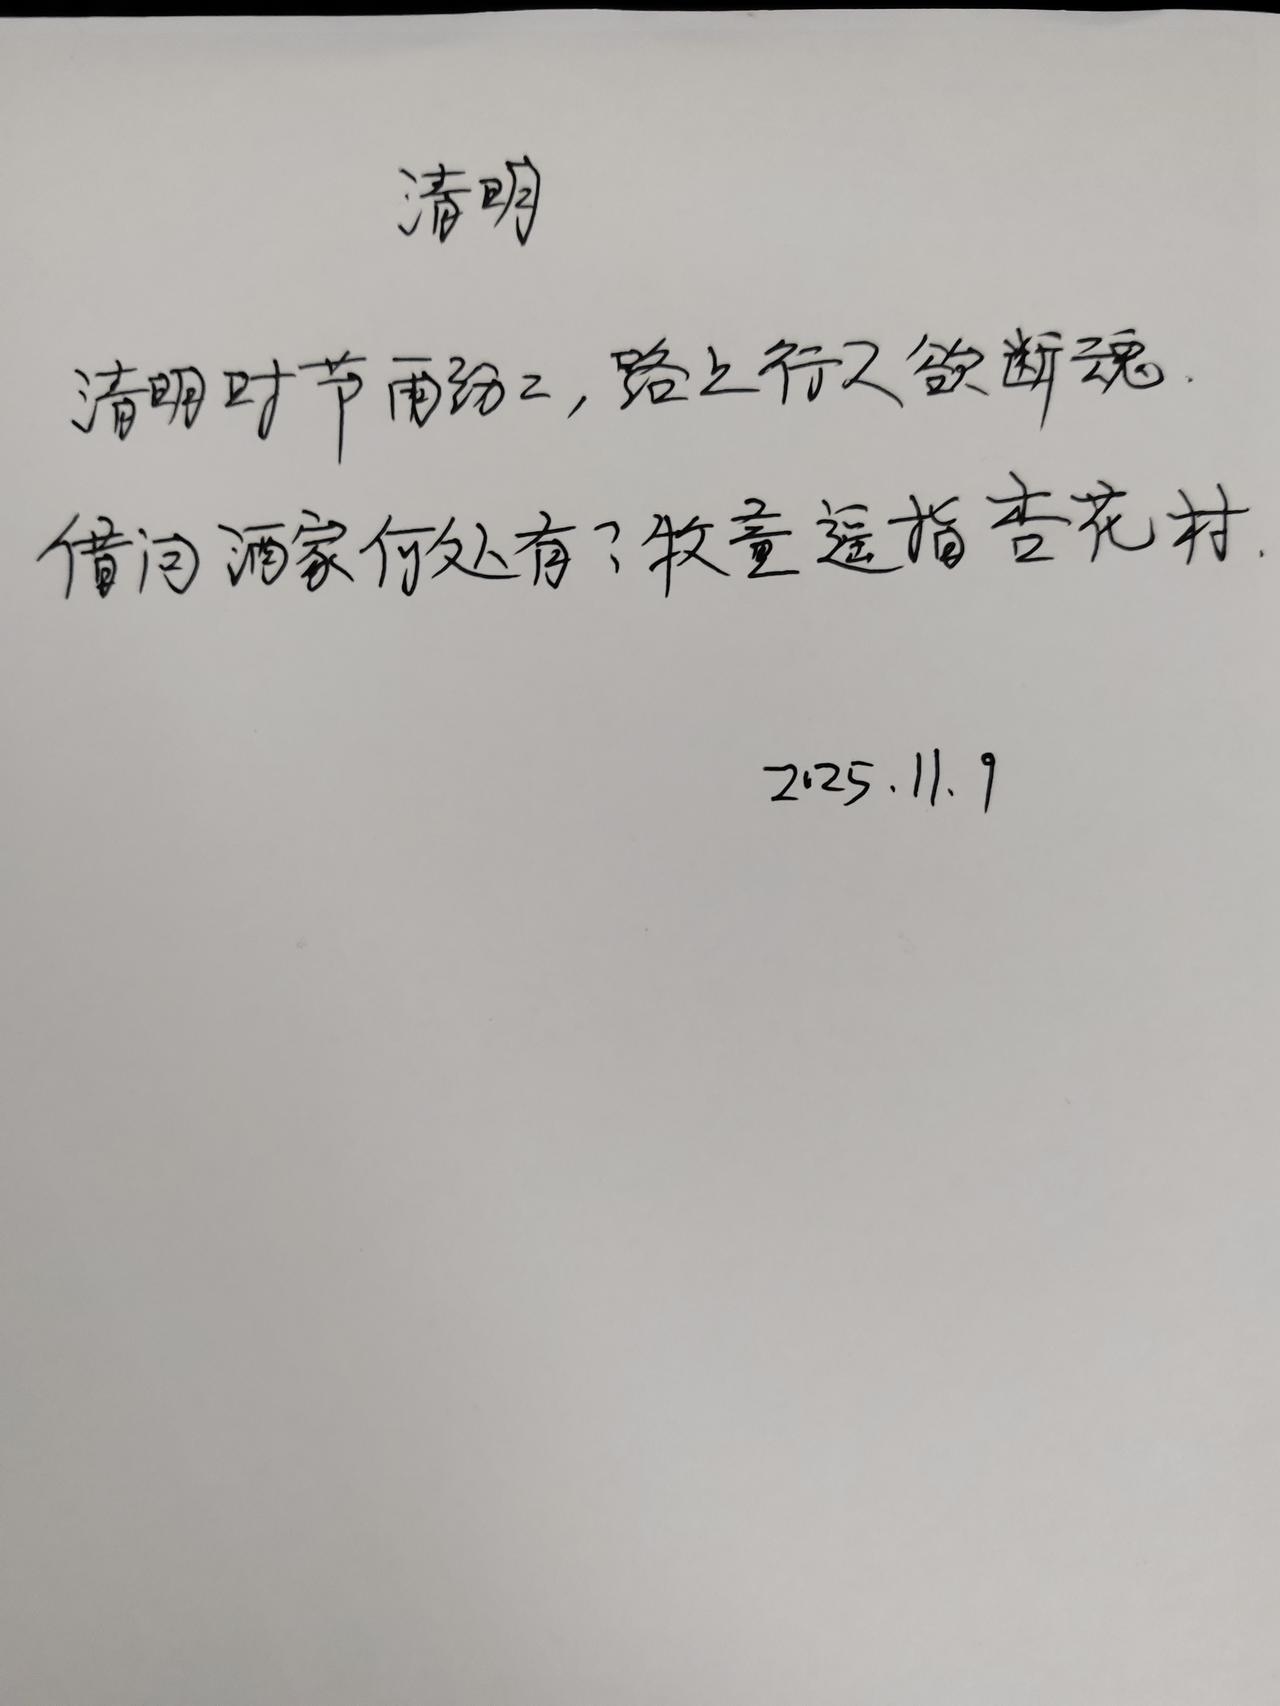 清明
清明时节雨纷々，路上行人欲断魂.
借问酒家何处有？牧童遥指杏花村.
2025.11.9